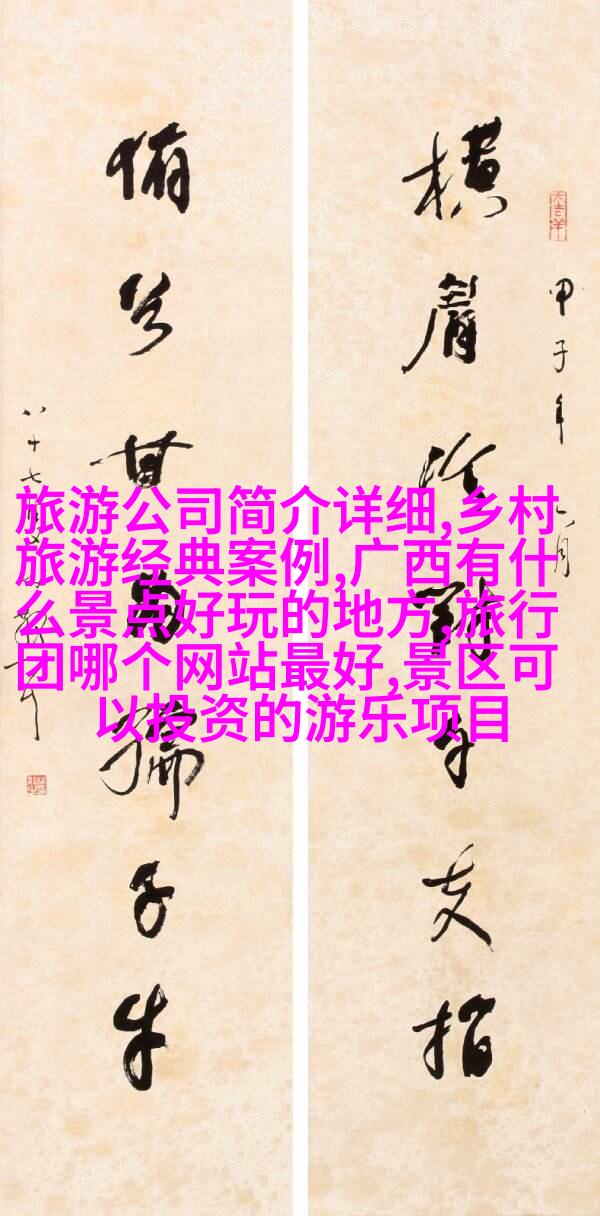 甲子年八月
横眉冷對千夫指
俯首甘為孺子牛
八十七
旅游公司简介详细,乡村
旅游经典案例,广西有什
么景点好玩的地方,旅行
团哪个网站最好,景区可
以投资的游乐项目